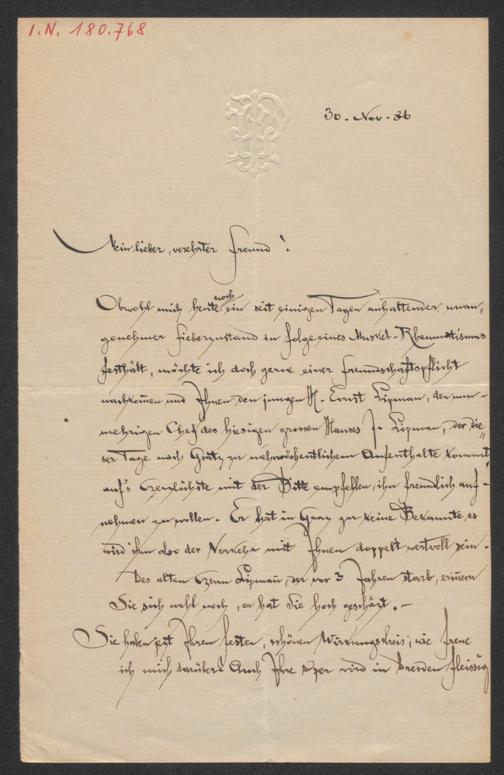 I.N. 180.768
30. Nov. 86
Mein lieber, verehrter Freund!
noch
Obwohl mich heute ein seit einigen Tagen anhaltender unan-
genehmer Fieberzustand in Folge eines Muskel-Rheumatismus
festhält, möchte ich doch gerne einer Freundschaftspflicht
nachkommen und Ihnen den jungen H. Ernst Lipman, der nun-
mehrigen Chef des hiesigen grossen Hauses J. Lipman, der die-
ser Tage nach Graz zu mehrwöchentlichem Aufenthalte kommt,
auf's Herzlichste mit der Bitte empfehlen, ihn freundlich auf-
nehmen zu wollen. Er hat in Graz gar keine Bekannte, es
wird ihm also der Verkehr mit Ihnen doppelt wertvoll sein.
Des alten Herrn Lipmann, der vor 3 Jahren starb, erinnern
Sie sich wohl noch, er hat Sie hoch geschätzt. –
Sie haben jetzt Ihren festen, schönen Wirkungskreis; wie freue
ich mich darüber! Auch Ihre Oper wird in Dresden fleissig